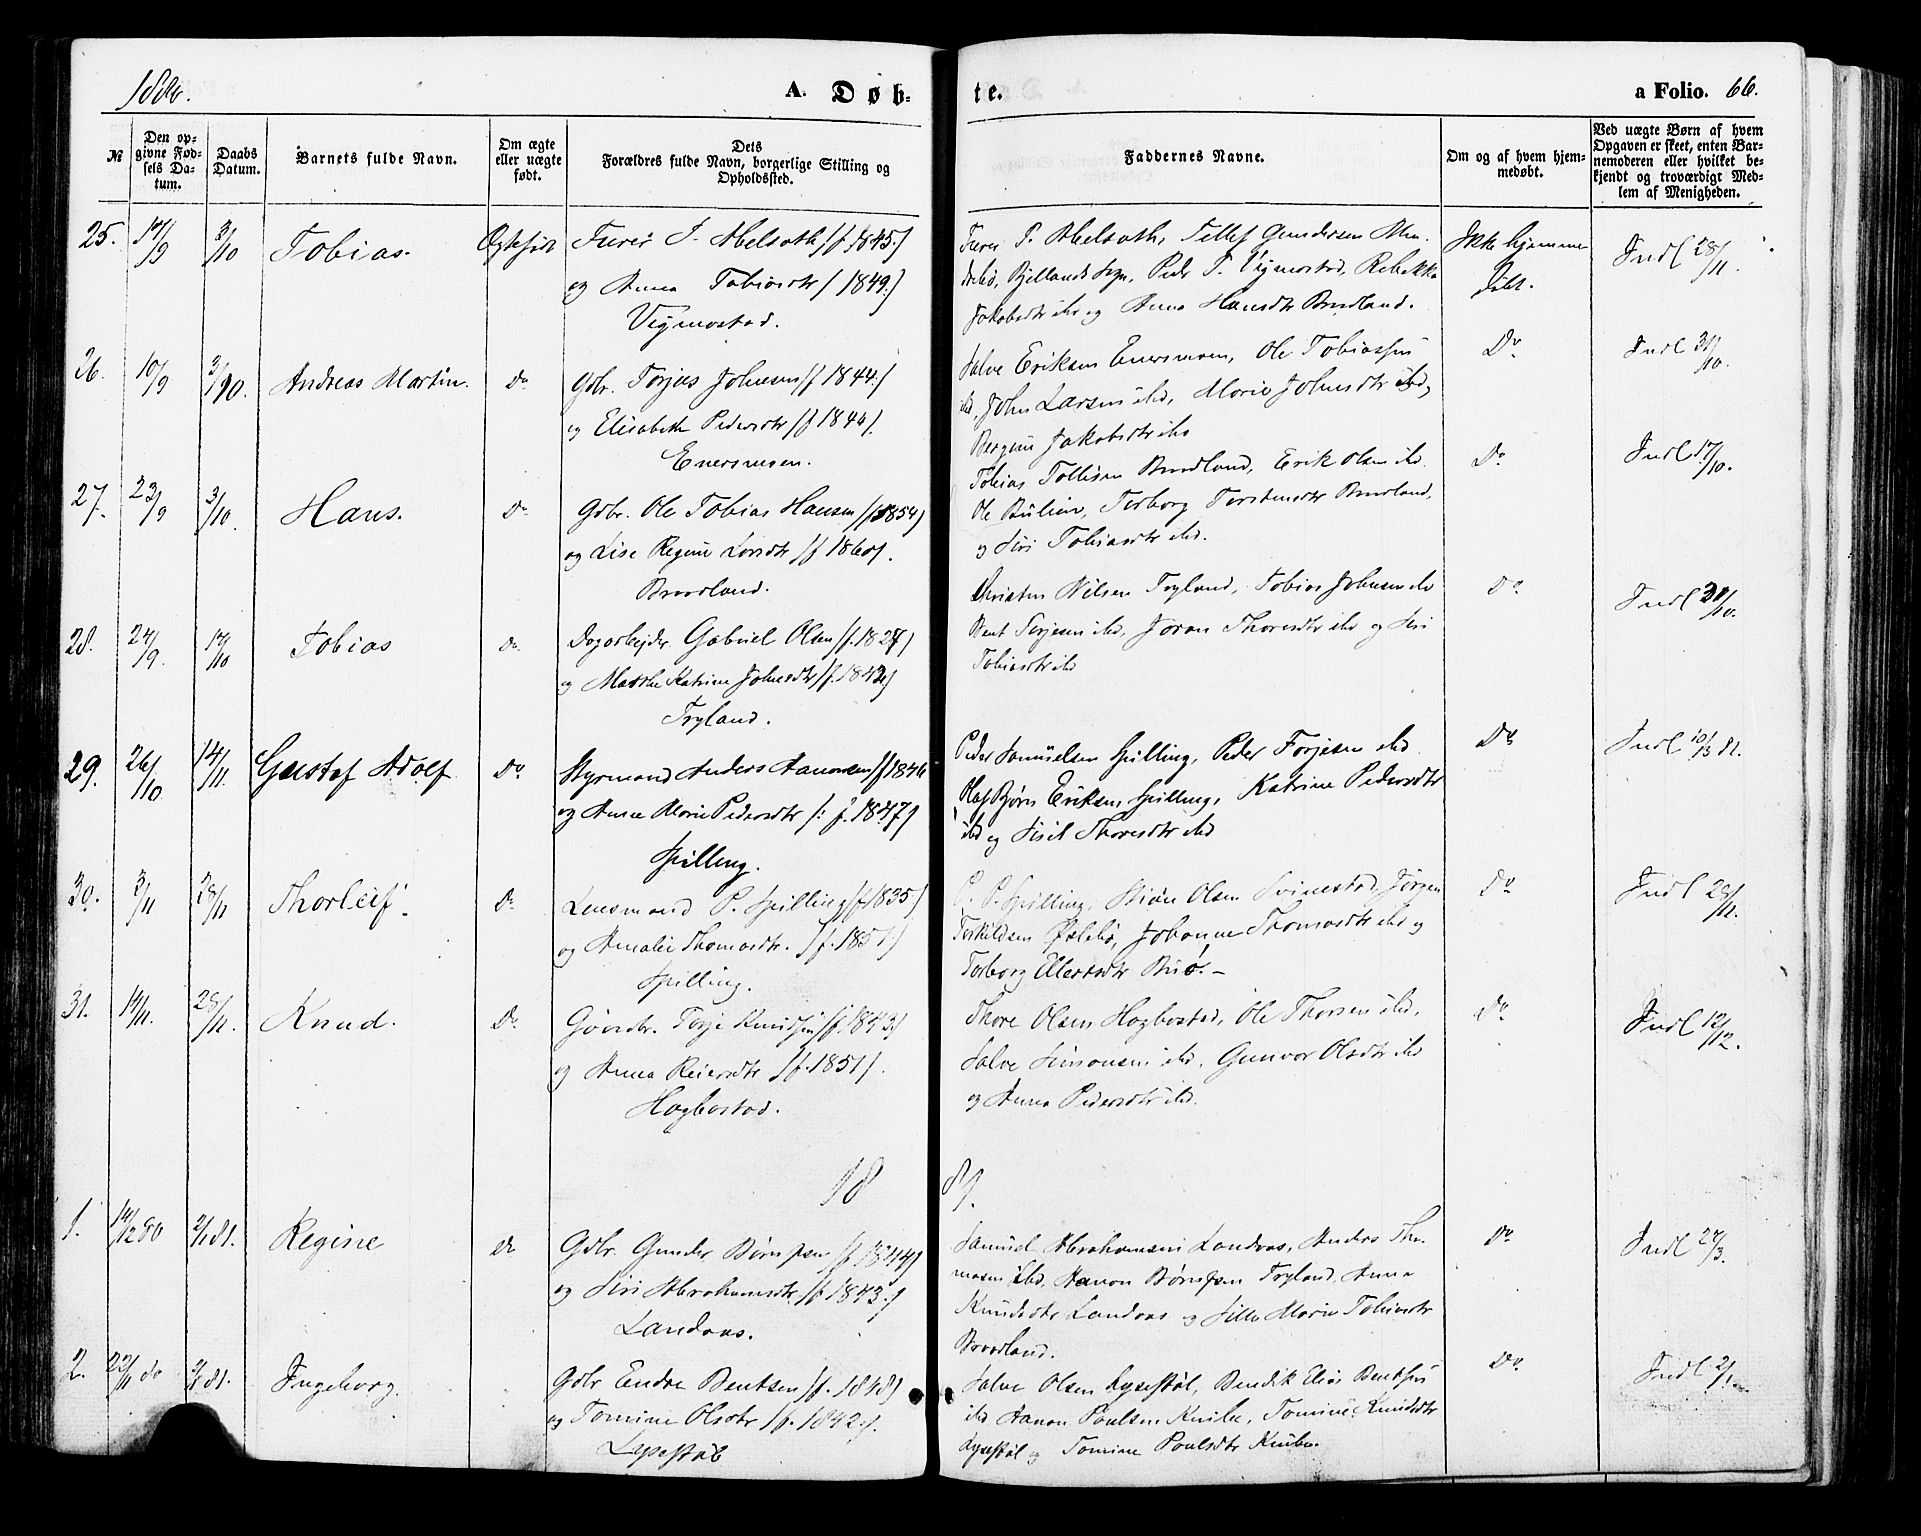 1880.
A. Døb-
te.
a Folio. 66.
№
Den op-
givne Fød-
sels Da-
tum.
Daabs
Datum.
Barnets fulde Navn.
Om ægte
eller uægte
født.
Dets
Forældres fulde Navn, borgerlige Stilling og
Opholdssted.
Faddernes Navne.
Om og af hvem hjem-
medøbt.
Ved uægte Børn af hvem
Opgaven er skeet, enten Bar-
nemoderen eller hvilket be-
kjendt og troværdigt Med-
lem af Menigheden.
25. 17/9 3/10 Tobias. Ægtefødt
og Anna Tobiasdtr (1849)
Vigmostad.
Peder T. Vigmostad, Rebekka
Jakobsdtr ibd og Anna Hansdtr Brædland.
Ikke hjemme
døbt.
Indl 28/11.
26. 10/9 3/10. Andreas Martin. Do
Gdbr. Torjus Johnsen (f 1844)
og Elisabeth Pedersdtr (f 1844).
Enersmoen.
Salve Eriksen Enersmoen, Ole Tobiassen
ibd, John Larsen ibd, Marie Johnsdtr ibd,
Bergine Jakobsdtr ibd
Do
Indl 31/10.
27. 23/9 3/10. Hans. Do
Gdbr. Ole Tobias Hansen (f 1854)
og Lise Regine Larsdtr (f 1860).
Brædland.
Tobias Tollisen Brædland, Erik Olsen ibd
Torborg Torstensdtr Brædland,
og Siri Tobiasdtr ibd.
Do
Indl 17/10.
28. 24/9. 17/10 Tobias Do
Dagarbejder Gabriel Olsen (f. 1827)
og Marthe Katrine Johnsdtr (f. 1842)
Tryland.
Christen Nilsen Tryland, Tobias Johnsen ibd
Bent Terjesen ibd, Joran Thoresdtr ibd og Siri
Tobiasdtr ibd
Do
Indl 31/10.
29. 26/10 14/11. Gustaf Adolf Do
Styrmand Anders Aanonsen (f 1846
og Anna Marie Pedersdtr (: f. 1847)
Spilling.
Peder Samuelsen Spilling, Peder Torjesen ibd
Olaf Bjørn Eriksen Spilling, Katrine Pedersdtr
ibd og Sisil Thoresdtr ibd
Do
Indl 10/3 81.
30. 3/11 28/11 Thorleif. Do
Lensmand P. Spilling (f 1835)
og Amalie Thomasdtr. (f. 1851.)
Spilling.
P. P. Spilling, Stian Olsen Svinestad, Jørgen
Terkildsen Øslebø, Johanne Thomasdtr ibd og
Torborg Ellertsdtr Buø.-
Do
Indl 28/11.
31. 14/11. 28/11. Knud. Do
Gaardbr. Torje Knudsen (f. 1843.)
og Anna Reiersdtr (f. 1851).
Høgbostad.
Thore Olsen Høgbostad, Ole Thorsen ibd,
Salve Simonsen ibd, Gunvor Olsdtr ibd
og Anna Pedersdtr ibd.
Do
Indl 12/12.
18
81.
1. 14/12 80 2/1 81. Regine Do
Gdbr. Gunder Børufsen (f 1844)
og Siri Abrahamsdtr (f 1843.)
Landaas.
Samuel Abrahamsen Landaas, Anders Tho-
masen ibd, Aanon Børufsen Tryland, Anna
Knudsdtr Landaas og Sille Marie Tobiasdtr
Brædland.
Do
Indl 27/3.
2. 22/11 80 2/1 81. Ingeborg.
Gdbr Endre Bentsen (f. 1848)
og Tomine Olsdtr (f. 1842).
Lysestøl
Salve Olsen Lysestøl, Bendik Elias Bentsen
ibd Aanon Paulsen Knibe, Tomine Knudsdtr
Lysestøl og Tomine Poulsdtr Knibe.
Do
Indl 2/1